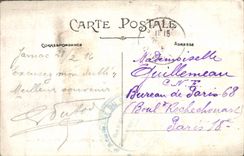 CARTE POSTALE
CORRESPONDANCE
ADRESSE
Jarnac 2 16
Excusez mon oubli
Meilleur souvenir
Mademoiselle
Guillemeau
Bureau de Paris 68
(Boul. Rochechouart
Paris 18e